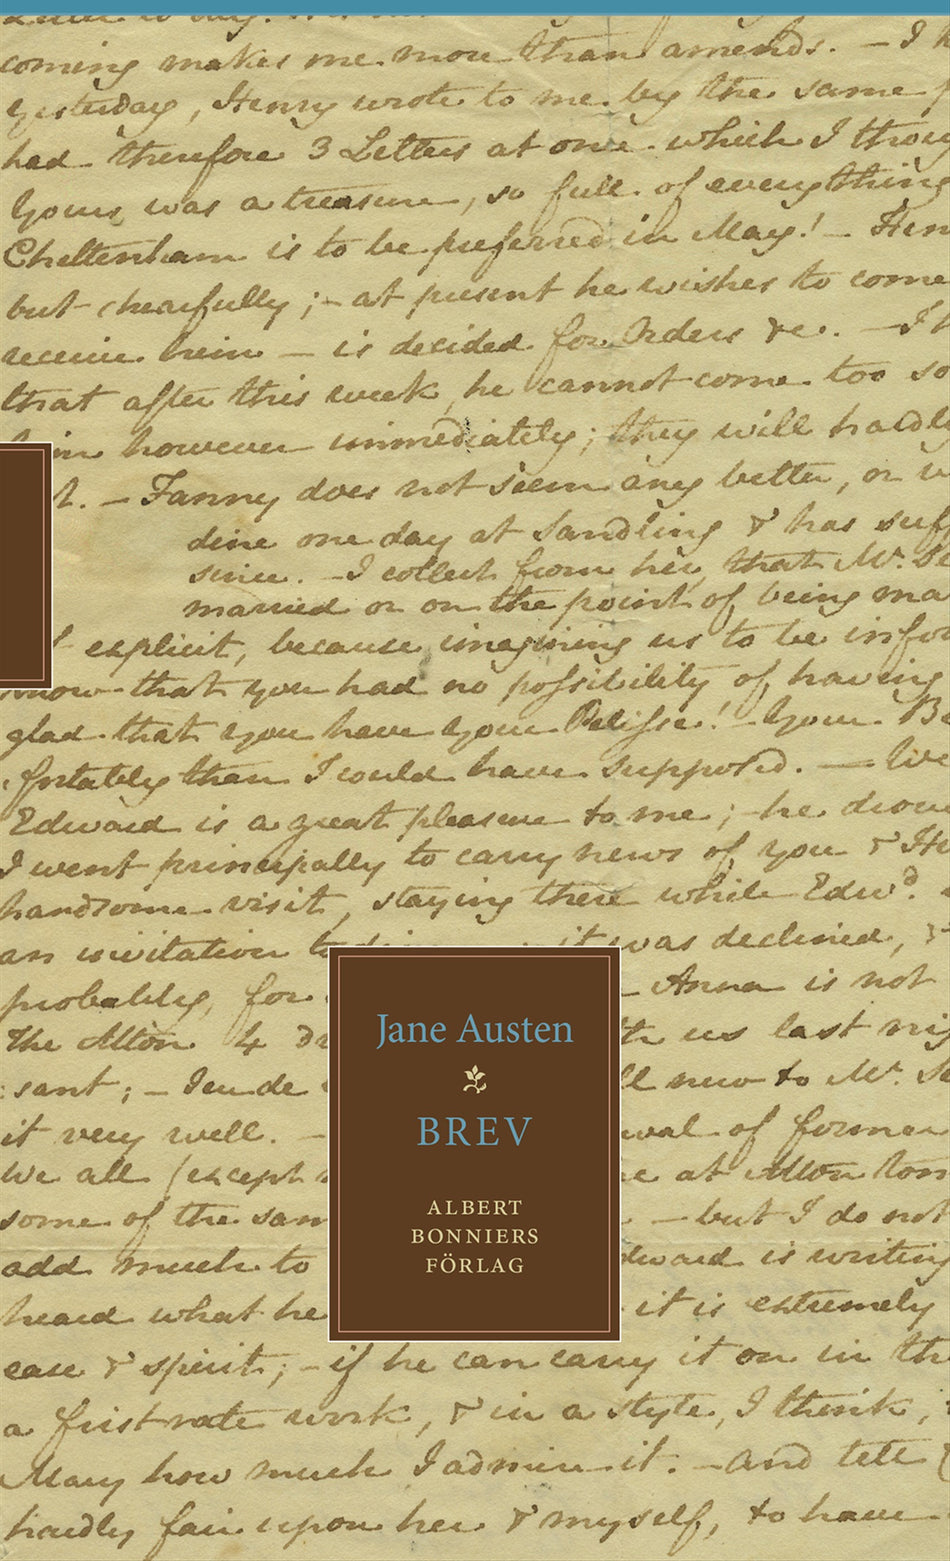 coming makes me more than amends. — I
yesterday, Henry wrote to me by the same
had therefore 3 Letters at once which I thou
Yours was a treasure, so full of everything
Cheltenham is to be preferred in May! — Hen
but chearfully; — at present he wishes to come
receive him — is decided for Orders &c. — I
that after this week, he cannot come too so
him however immediately; they will hardly
— Fanny does not seem any better, or
dine one day at Sandling & has suff
since. — I collect from her, that Mr.
married or on the point of being ma
explicit, because imagining us to be infor
know that you had no possibility of having
glad that you have your Pelisse! — Your
fortably than I would have supposed. — We
Edward is a great pleasure to me; — he drov
I went principally to carry news of you & He
handsome visit, staying there while Edwd.
an invitation to it was declined, &
probably, for — Anna is not
The Alton 4 us last nig
sant; — ll new to Mr.
it very well. — of former
We all (except at Alton
some of the sam — but I do not
add much to dward is writing
heard what he it is extremely
ease & spirit; — if he can carry it on in th
a firstrate work, & in a style, I think,
Mary how much I admire it. — And tell
hardly fair upon her & myself, to have
Jane Austen
BREV
ALBERT
BONNIERS
FÖRLAG